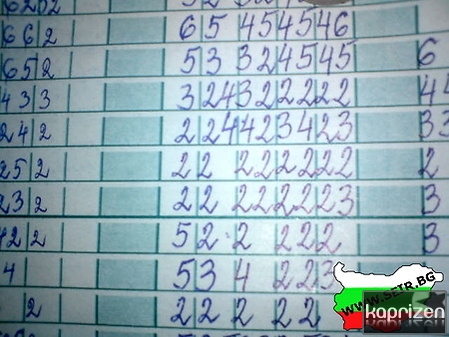 662 65 454546
652 53 324545 6
433 3243222222 44
242 2244234 23 33
252 22 222222 2
232 22 222223 3
422 52 2 222 3
4 53 4 223
2 22 2 22
WWW.SETR.BG
kaprizen